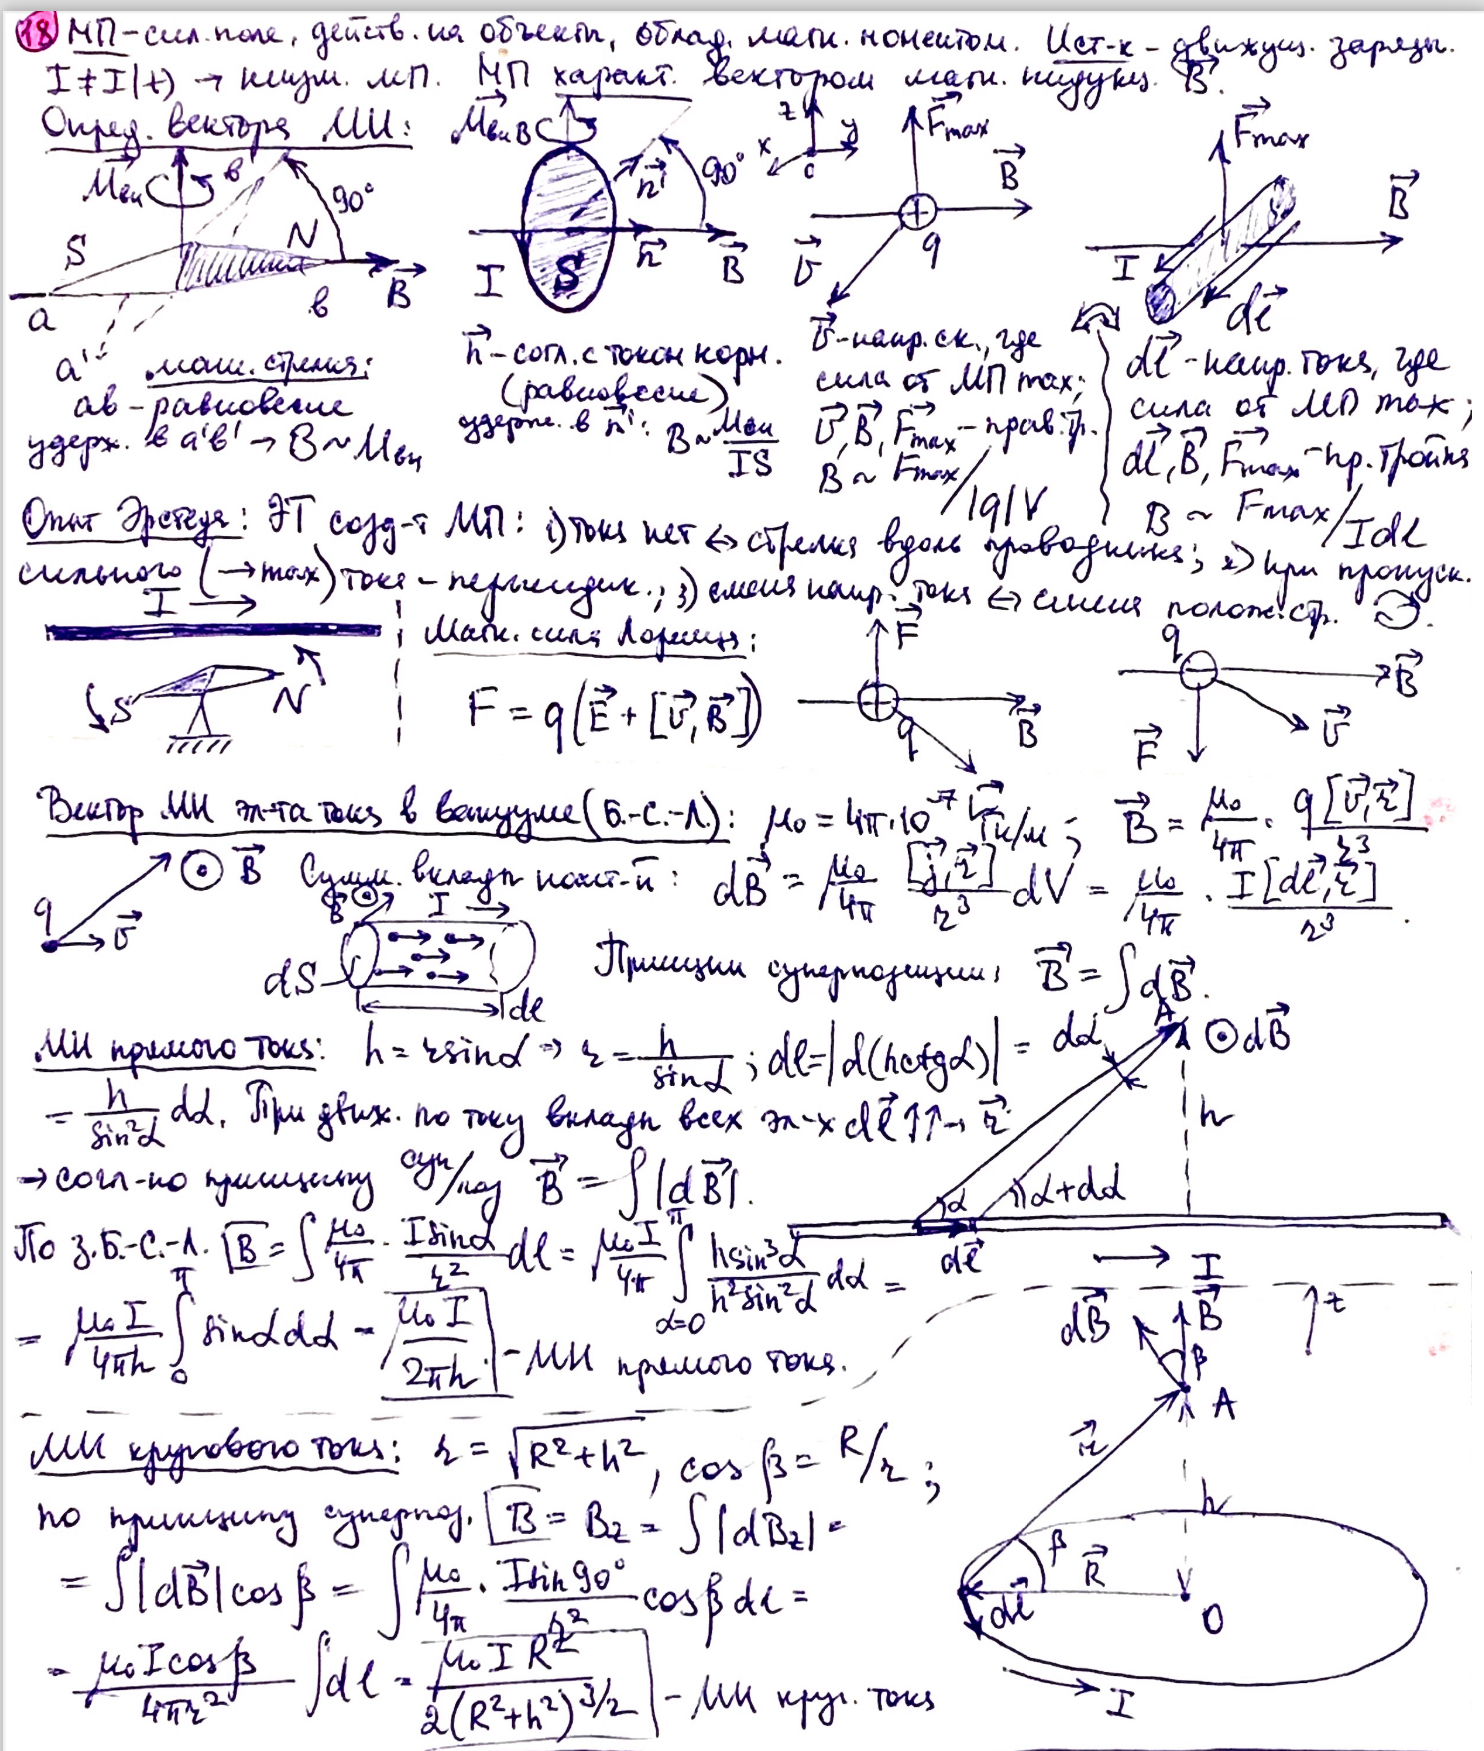 18 МП – сил. поле, действ. на объекты, облад. магн. моментом. Ист-к – движущ. заряды.
I ≠ I(t) → неизм. МП. МП характ. вектором магн. индукц. B⃗.
Опред. вектора МИ:
M⃗вн
в'
90°
S
N
B⃗
a
в
a'
магн. стрелка:
ab – равновесие
удерж. в a'b' → B ~ Mвн
M⃗вн
B
90°
n⃗'
n⃗
B⃗
I
S
n⃗ – согл. с током норм.
(равновесие)
удерж. в n⃗': B ~ Mвн/IS
z
x
y
0
F⃗max
B⃗
q
v⃗
v⃗ – напр. ск., где
сила от МП max;
v⃗, B⃗, F⃗max – прав. тр.
B ~ Fmax/|q|V
F⃗max
B⃗
I
dl⃗
dl⃗ – напр. тока, где
сила от МП max;
dl⃗, B⃗, F⃗max – пр. тройка
B ~ Fmax/Idl
Опыт Эрстеда: ЭТ созд-т МП: 1) тока нет ↔ стрелка вдоль проводника; 2) при пропуск.
сильного (→ max) тока – перпендик.; 3) смена напр. тока ↔ смена полож. стр.
I →
S
N
Магн. сила Лоренца:
F = q(E⃗ + [v⃗, B⃗])
F⃗
q
B⃗
q
B⃗
v⃗
F⃗
Вектор МИ эл-та тока в вакууме (Б.-С.-Л.): μ₀ = 4π·10⁻⁷ Гн/м; B⃗ = μ₀/4π · q[v⃗, r⃗]/r³
q
v⃗
B⃗
Сумм. вклады носит-й: dB⃗ = μ₀/4π [j⃗, r⃗]/r³ dV = μ₀/4π · I[dl⃗, r⃗]/r³.
B⃗
I
dS
dl
Принцип суперпозиции: B⃗ = ∫dB⃗.
МИ прямого тока: h = r sinα ⇒ r = h/sinα; dl = |d(h ctgα)| =
= h/sin²α dα. При движ. по току вклады всех эл-х dl⃗ ↑↑ →
→ согл-но принципу суп/поз B⃗ = ∫|dB⃗|.
По з. Б.-С.-Л. B = ∫ μ₀/4π · I sinα/r² dl = μ₀I/4π ∫_{α=0}^{π} h sin³α/h² sin²α dα =
= μ₀I/4πh ∫₀^π sinα dα = μ₀I/2πh – МИ прямого тока.
dα
A
dB⃗
r⃗
h
α
α+dα
dl⃗
I
МИ кругового тока: r = √R²+h², cos β = R/r;
по принципу суперпоз. B = Bz = ∫|dBz| =
= ∫|dB⃗| cos β = ∫ μ₀/4π · I sin 90°/r² cos β dl =
= μ₀I cos β/4πr² ∫dl = μ₀ I R²/2(R²+h²)^3/2 – МИ круг. тока
dB⃗
B⃗
z
β
A
r⃗
h
β
R⃗
dl⃗
O
I